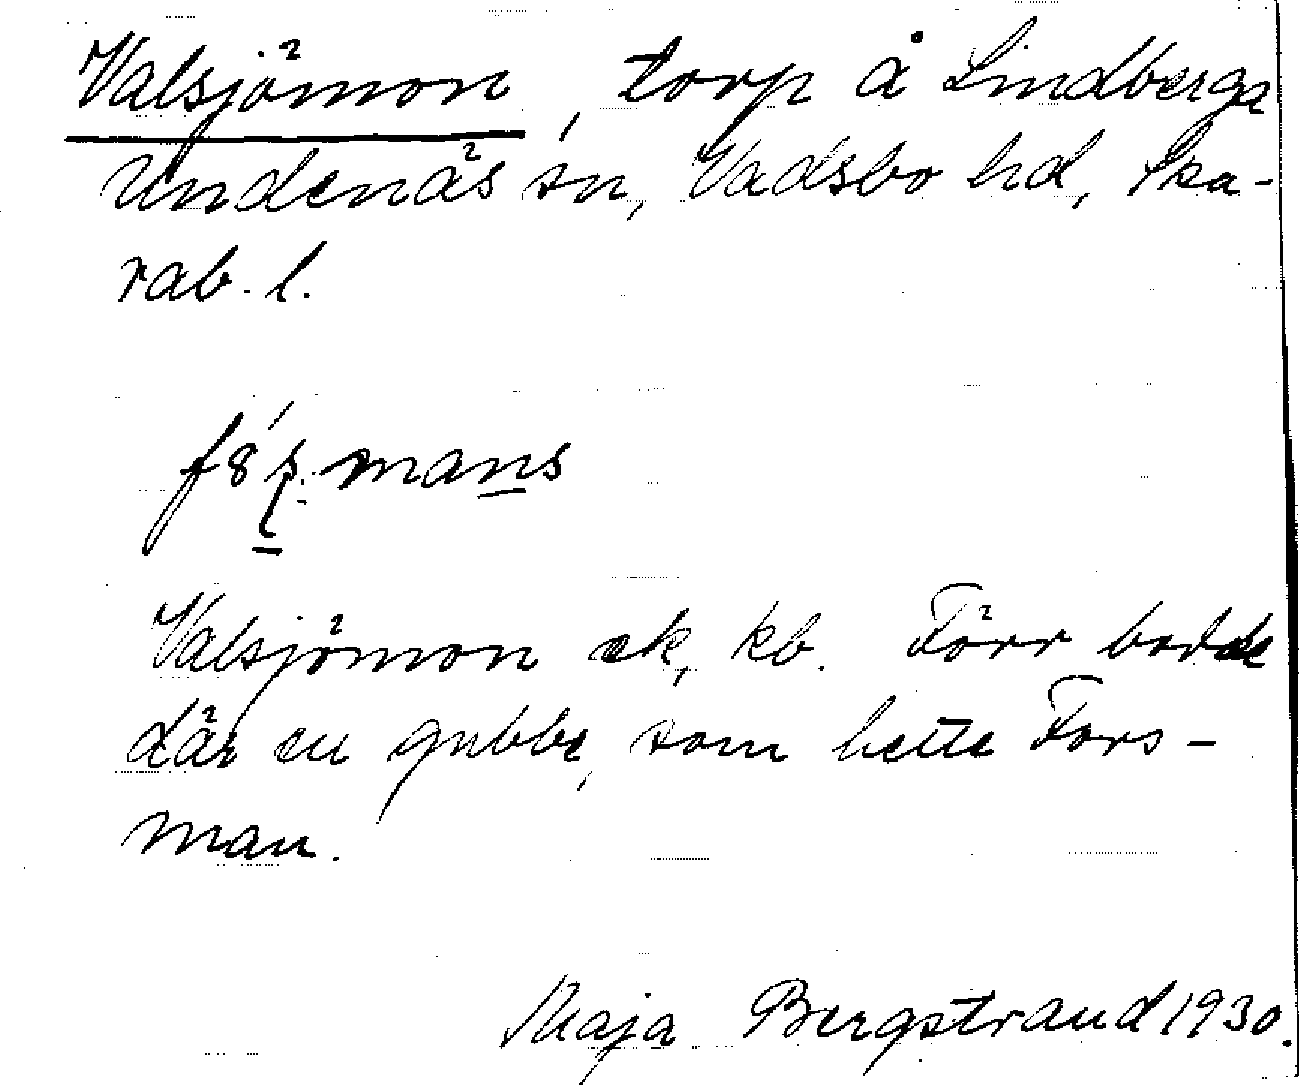 Valsjömon, torp å Lindberga
Undenäs sn, Vadsbo hd, Ska-
rab. l.
mans
Valsjömon ek, kb. Förr bodde
där en gubbe, som hette Fors-
man.
Maja Bergstrand 1930.